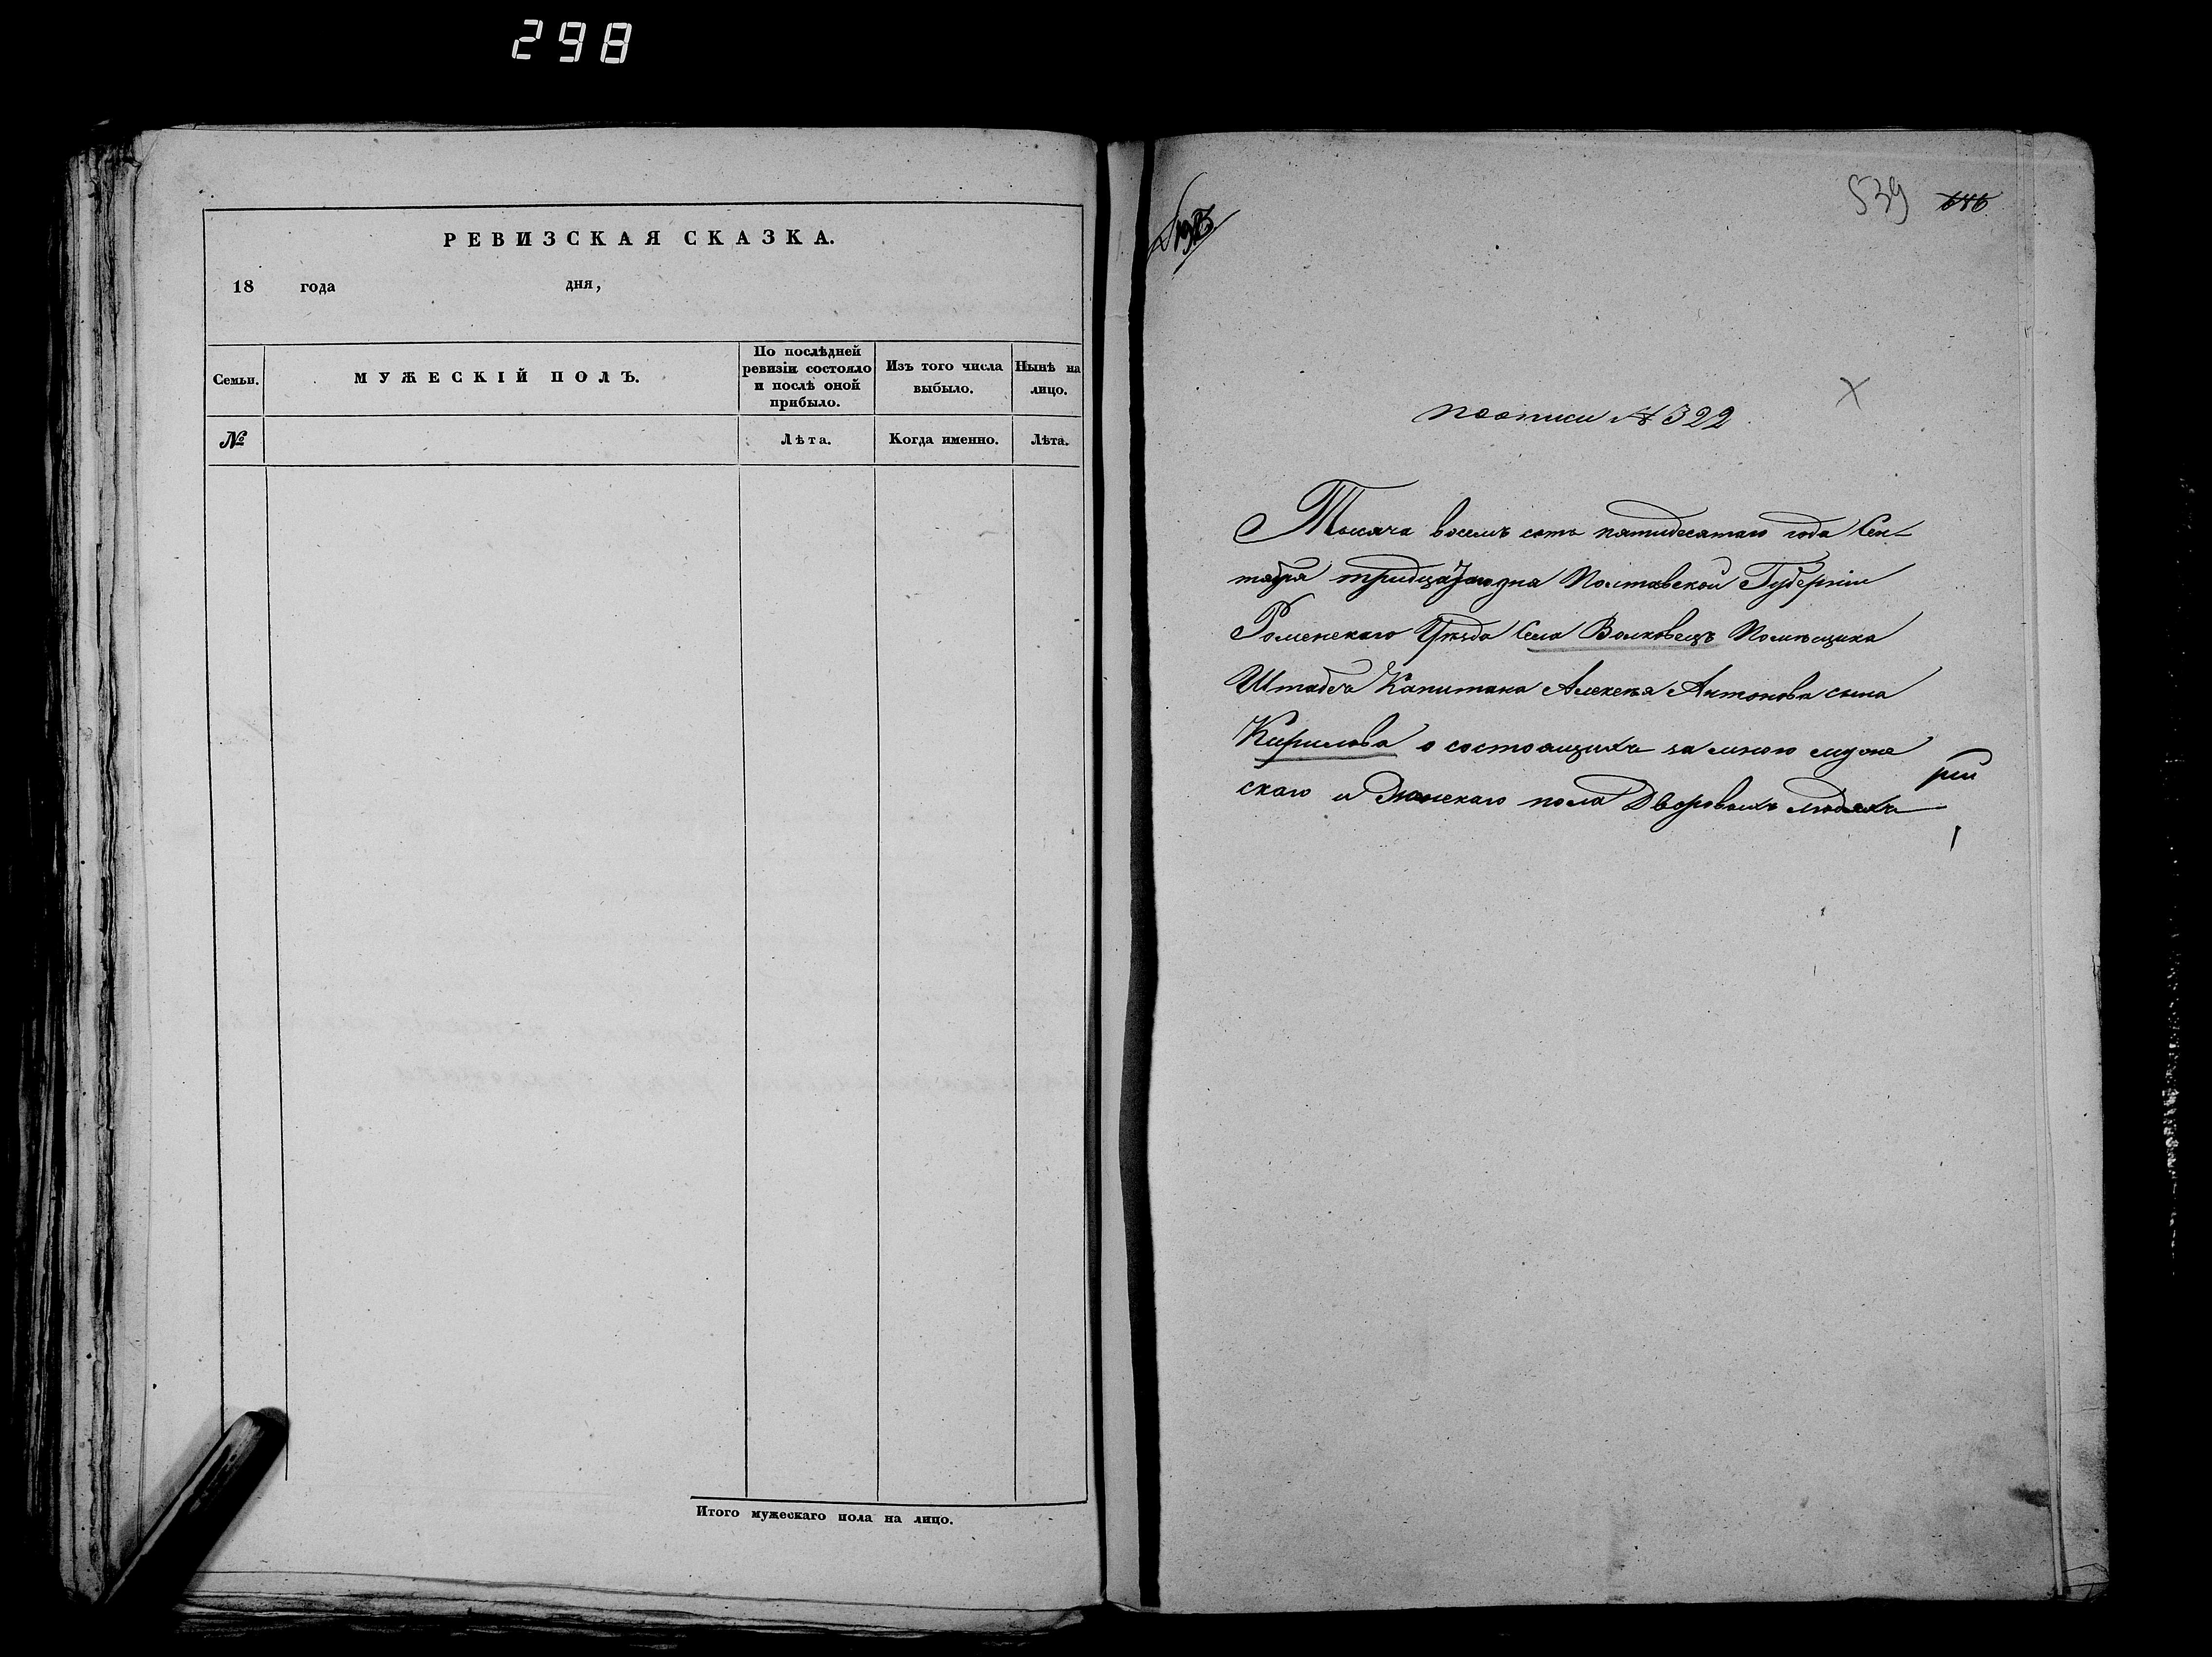 298
РЕВИЗСКАЯ СКАЗКА.
18 года дня,
Семьи.
МУЖЕСКІЙ ПОЛЪ.
По послѣдней ревизіи состояло и послѣ оной прибыло.
Изъ того числа выбыло.
Нынѣ на лицо.
№
Лѣта.
Когда именно.
Лѣта.
Итого мужескаго пола на лицо.
539
поописи № 322
Тысяча восемъ сотъ пятидесятаго года Сен-
тября тридцатаго дня Полтавской Губерніи
Роменскаго Уѣзда Села Волковецъ Помѣщика
Штабсъ Капитана Алексѣя Антонова сына
Кирилова о состоящихъ за мною муже
скаго и Женскаго пола Дворовыхъ людяхъ